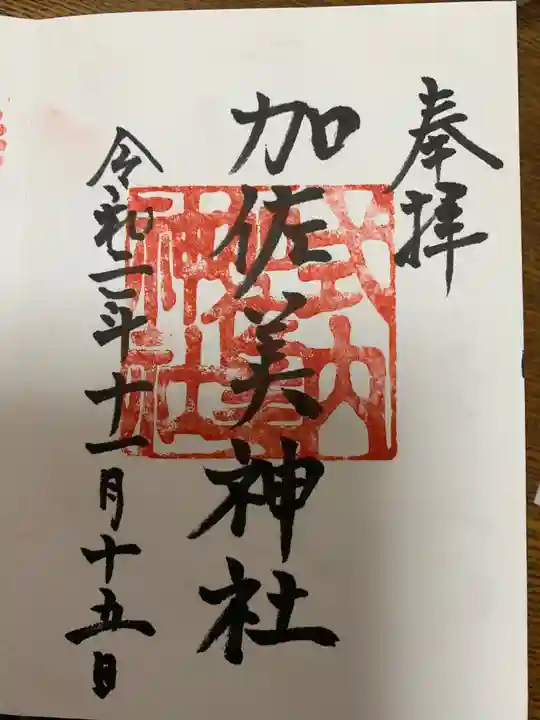 奉拝
加佐美神社
令和二年十一月十五日